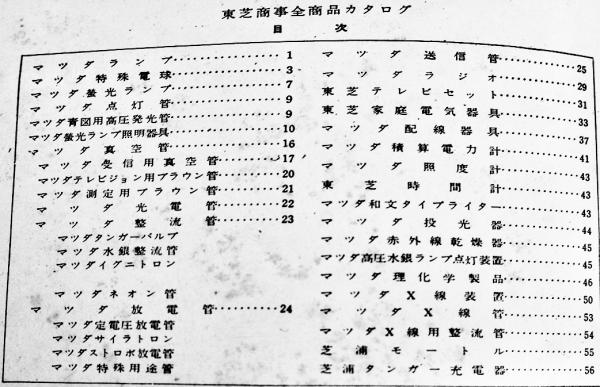 東芝商事全商品カタログ
目次
マツダランプ 1
マツダ特殊電球 3
マツダ螢光ランプ 7
マツダ点灯管 9
マツダ青図用高圧発光管 9
マツダ螢光ランプ照明器具 10
マツダ真空管 16
マツダ受信用真空管 17
マツダテレビジョン用ブラウン管 20
マツダ測定用ブラウン管 21
マツダ光電管 22
マツダ整流管 23
マツダタンガーバルブ
マツダ水銀整流管
マツダイグニトロン
マツダネオン管
マツダ放電管 24
マツダ定電圧放電管
マツダサイラトロン
マツダストロボ放電管
マツダ特殊用途管
マツダ送信管 25
マツダラジオ 29
東芝テレビセット 31
東芝家庭電気器具 33
マツダ配線器具 37
マツダ積算電力計 41
マツダ照度計 43
東芝時間計 43
マツダ和文タイプライター 43
マツダ投光器 44
マツダ赤外線乾燥器 45
マツダ高圧水銀ランプ点灯装置 45
マツダ理化学製品 46
マツダX線装置 50
マツダX線管 53
マツダX線用整流管 54
芝浦モートル 55
芝浦タンガー充電器 56